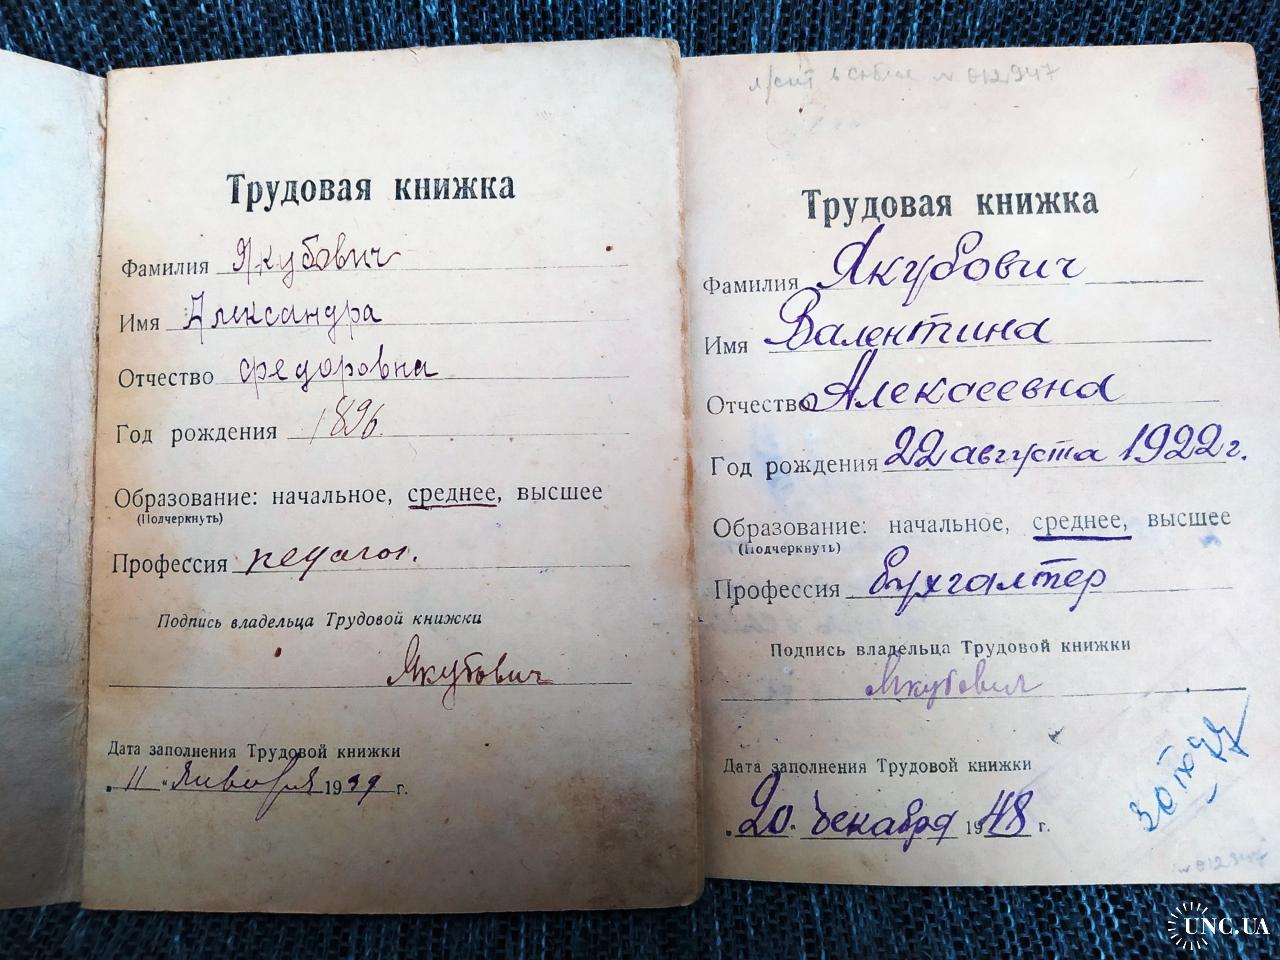 Трудовая книжка
Фамилия Якубович
Имя Александра
Отчество Федоровна
Год рождения 1896.
Образование: начальное, среднее, высшее
(Подчеркнуть)
Профессия педагог.
Подпись владельца Трудовой книжки
Якубович
Дата заполнения Трудовой книжки
"11" января 1939 г.
№ 012947
Трудовая книжка
Фамилия Якубович
Имя Валентина
Отчество Алексеевна
Год рождения 22 августа 1922 г.
Образование: начальное, среднее, высшее
(Подчеркнуть)
Профессия бухгалтер
Подпись владельца Трудовой книжки
Якубович
Дата заполнения Трудовой книжки
"20" декабря 1948 г.
30
№ 012947
UNC.UA